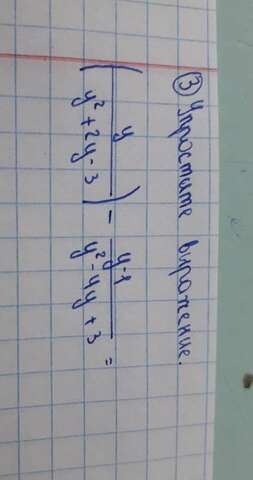 ③ Упростите выражение.
(y / (y² + 2y - 3)) - (y - 1) / (y² - 4y + 3) =